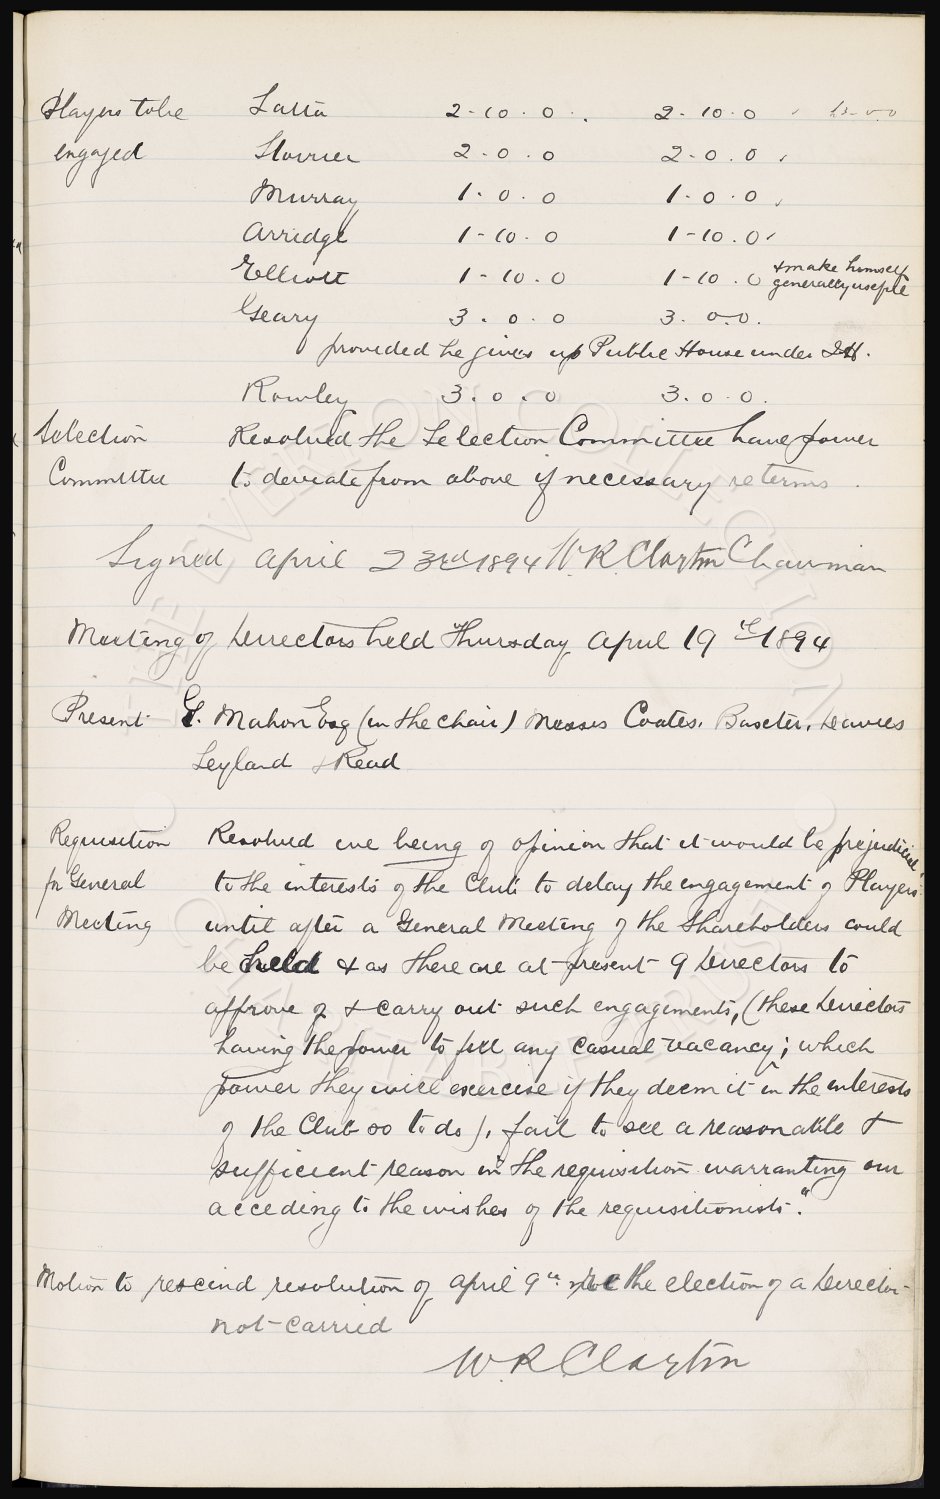 Players to be Latta 2-10.0. 2-10.0
engaged Storrier 2-0.0 2-0.0
Murray 1-0.0 1-0.0
Arridge 1-10.0 1-10.0
Elliott 1-10.0 1-10.0 & make himself generally useful
Geary 3.0.0 3.0.0.
provided he gives up Public House under
Rowley 3.0.0 3.0.0.
Selection Resolved the Selection Committee have power
Committee to deviate from above if necessary re terms.
Signed April 23rd 1894 W.R. Clayton Chairman
Meeting of Directors held Thursday April 19th 1894
Present G. Mahon Esq (in the chair) Messrs Coates. Baxter. Davies
Leyland & Read
Requisition Resolved we being of opinion that it would be prejudicial
for General to the interests of the Club to delay the engagement of Players
Meeting until after a General Meeting of the Shareholders could
be held & as there are at present 9 Directors to
approve of & carry out such engagements, (these Directors
having the power to fill any casual vacancy; which
power they will exercise if they deem it in the interests
of the Club so to do), fail to see a reasonable &
sufficient reason in the requisition warranting our
acceding to the wishes of the requisitionists."
Motion to rescind resolution of April 9th re the election of a Director
not carried
W.R. Clayton
THE EVERTON COLLECTION
CHARITABLE TRUST